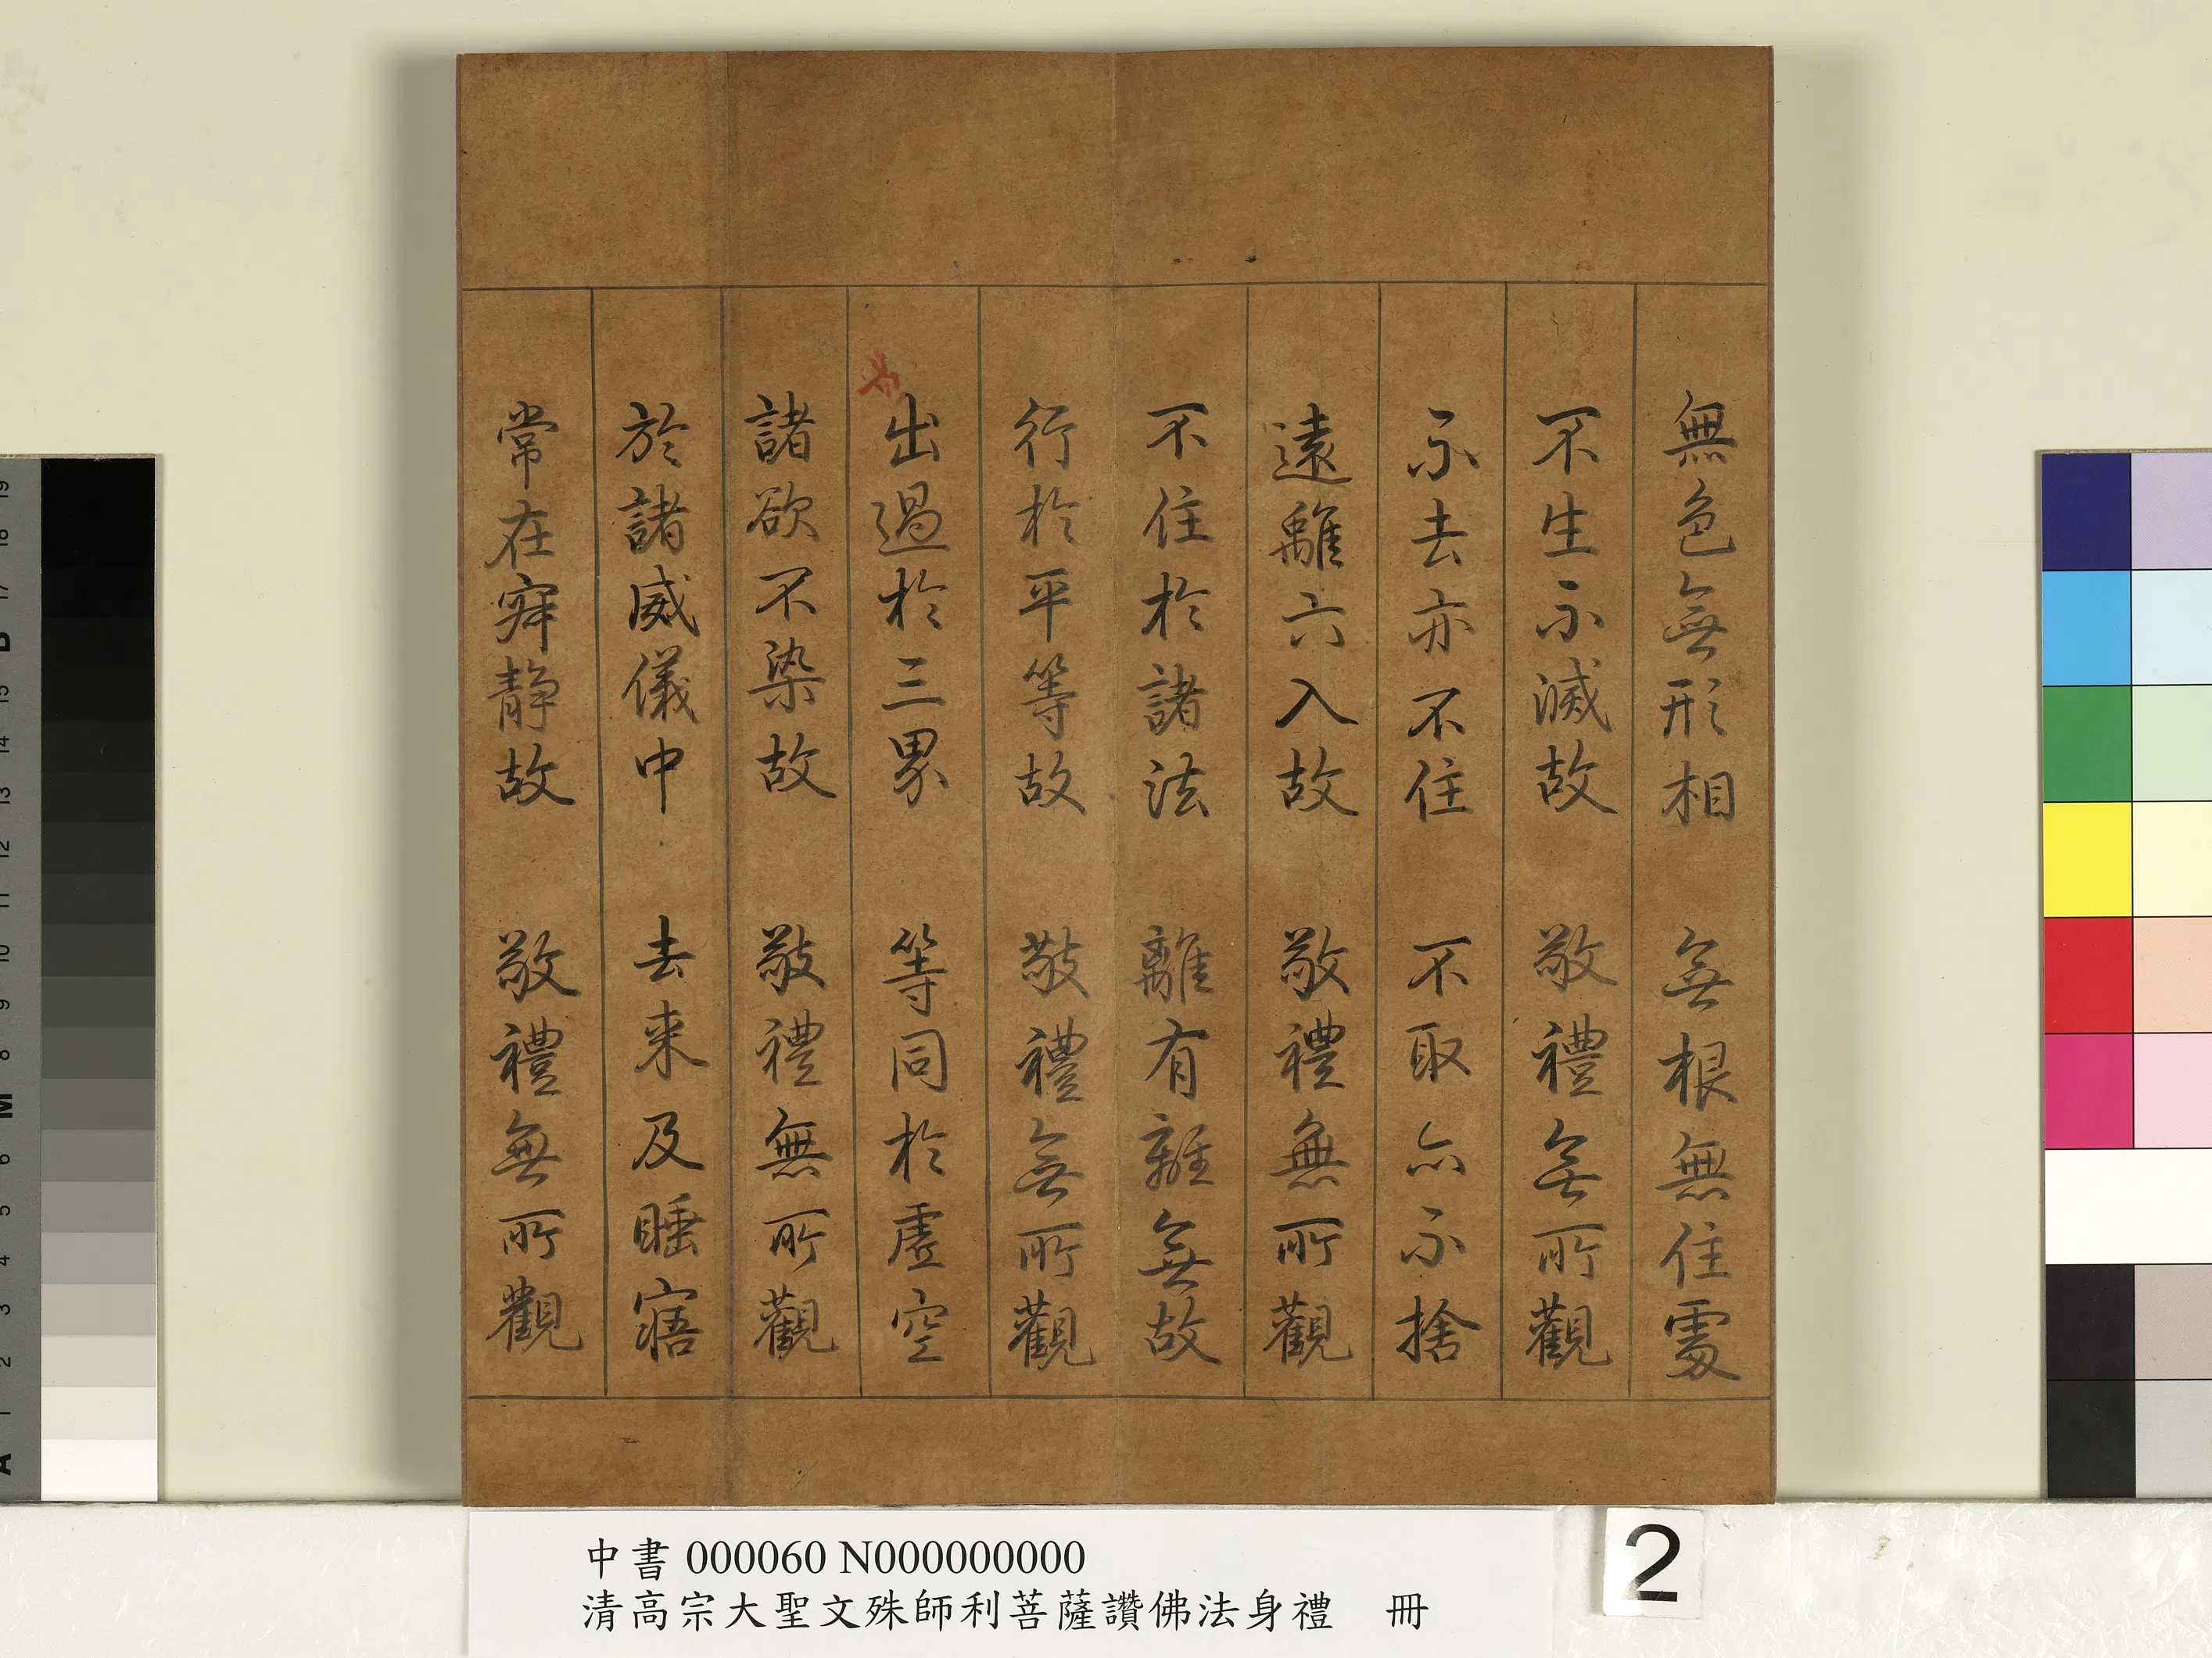 無色無形相　無根無住處
不生不滅故　敬禮無所觀
不去亦不住　不取亦不捨
遠離六入故　敬禮無所觀
不住於諸法　離有離無故
行於平等故　敬禮無所觀
出過於三界　等同於虛空
諸欲不染故　敬禮無所觀
於諸威儀中　去來及睡寤
常在寂靜故　敬禮無所觀
中書 000060 N000000000
清高宗大聖文殊師利菩薩讚佛法身禮　冊
2
19
18
17
B
15
14
13
12
11
10
9
8
M
6
5
4
3
2
1
A